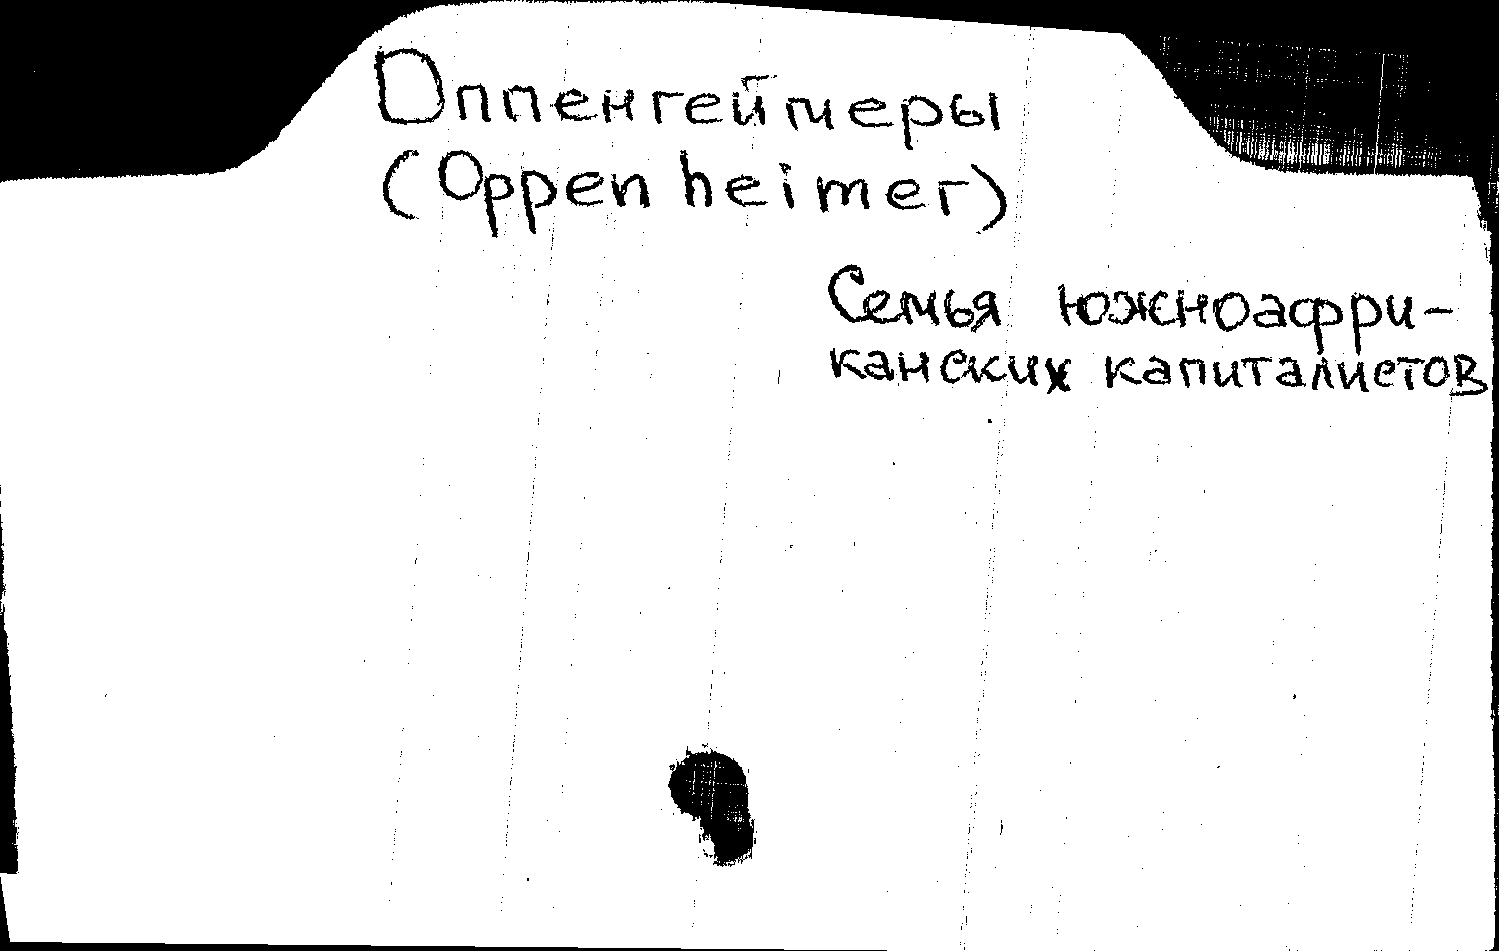 Оппенгеймеры
(Oppenheimer)
Семья южноафри-
канских капиталистов